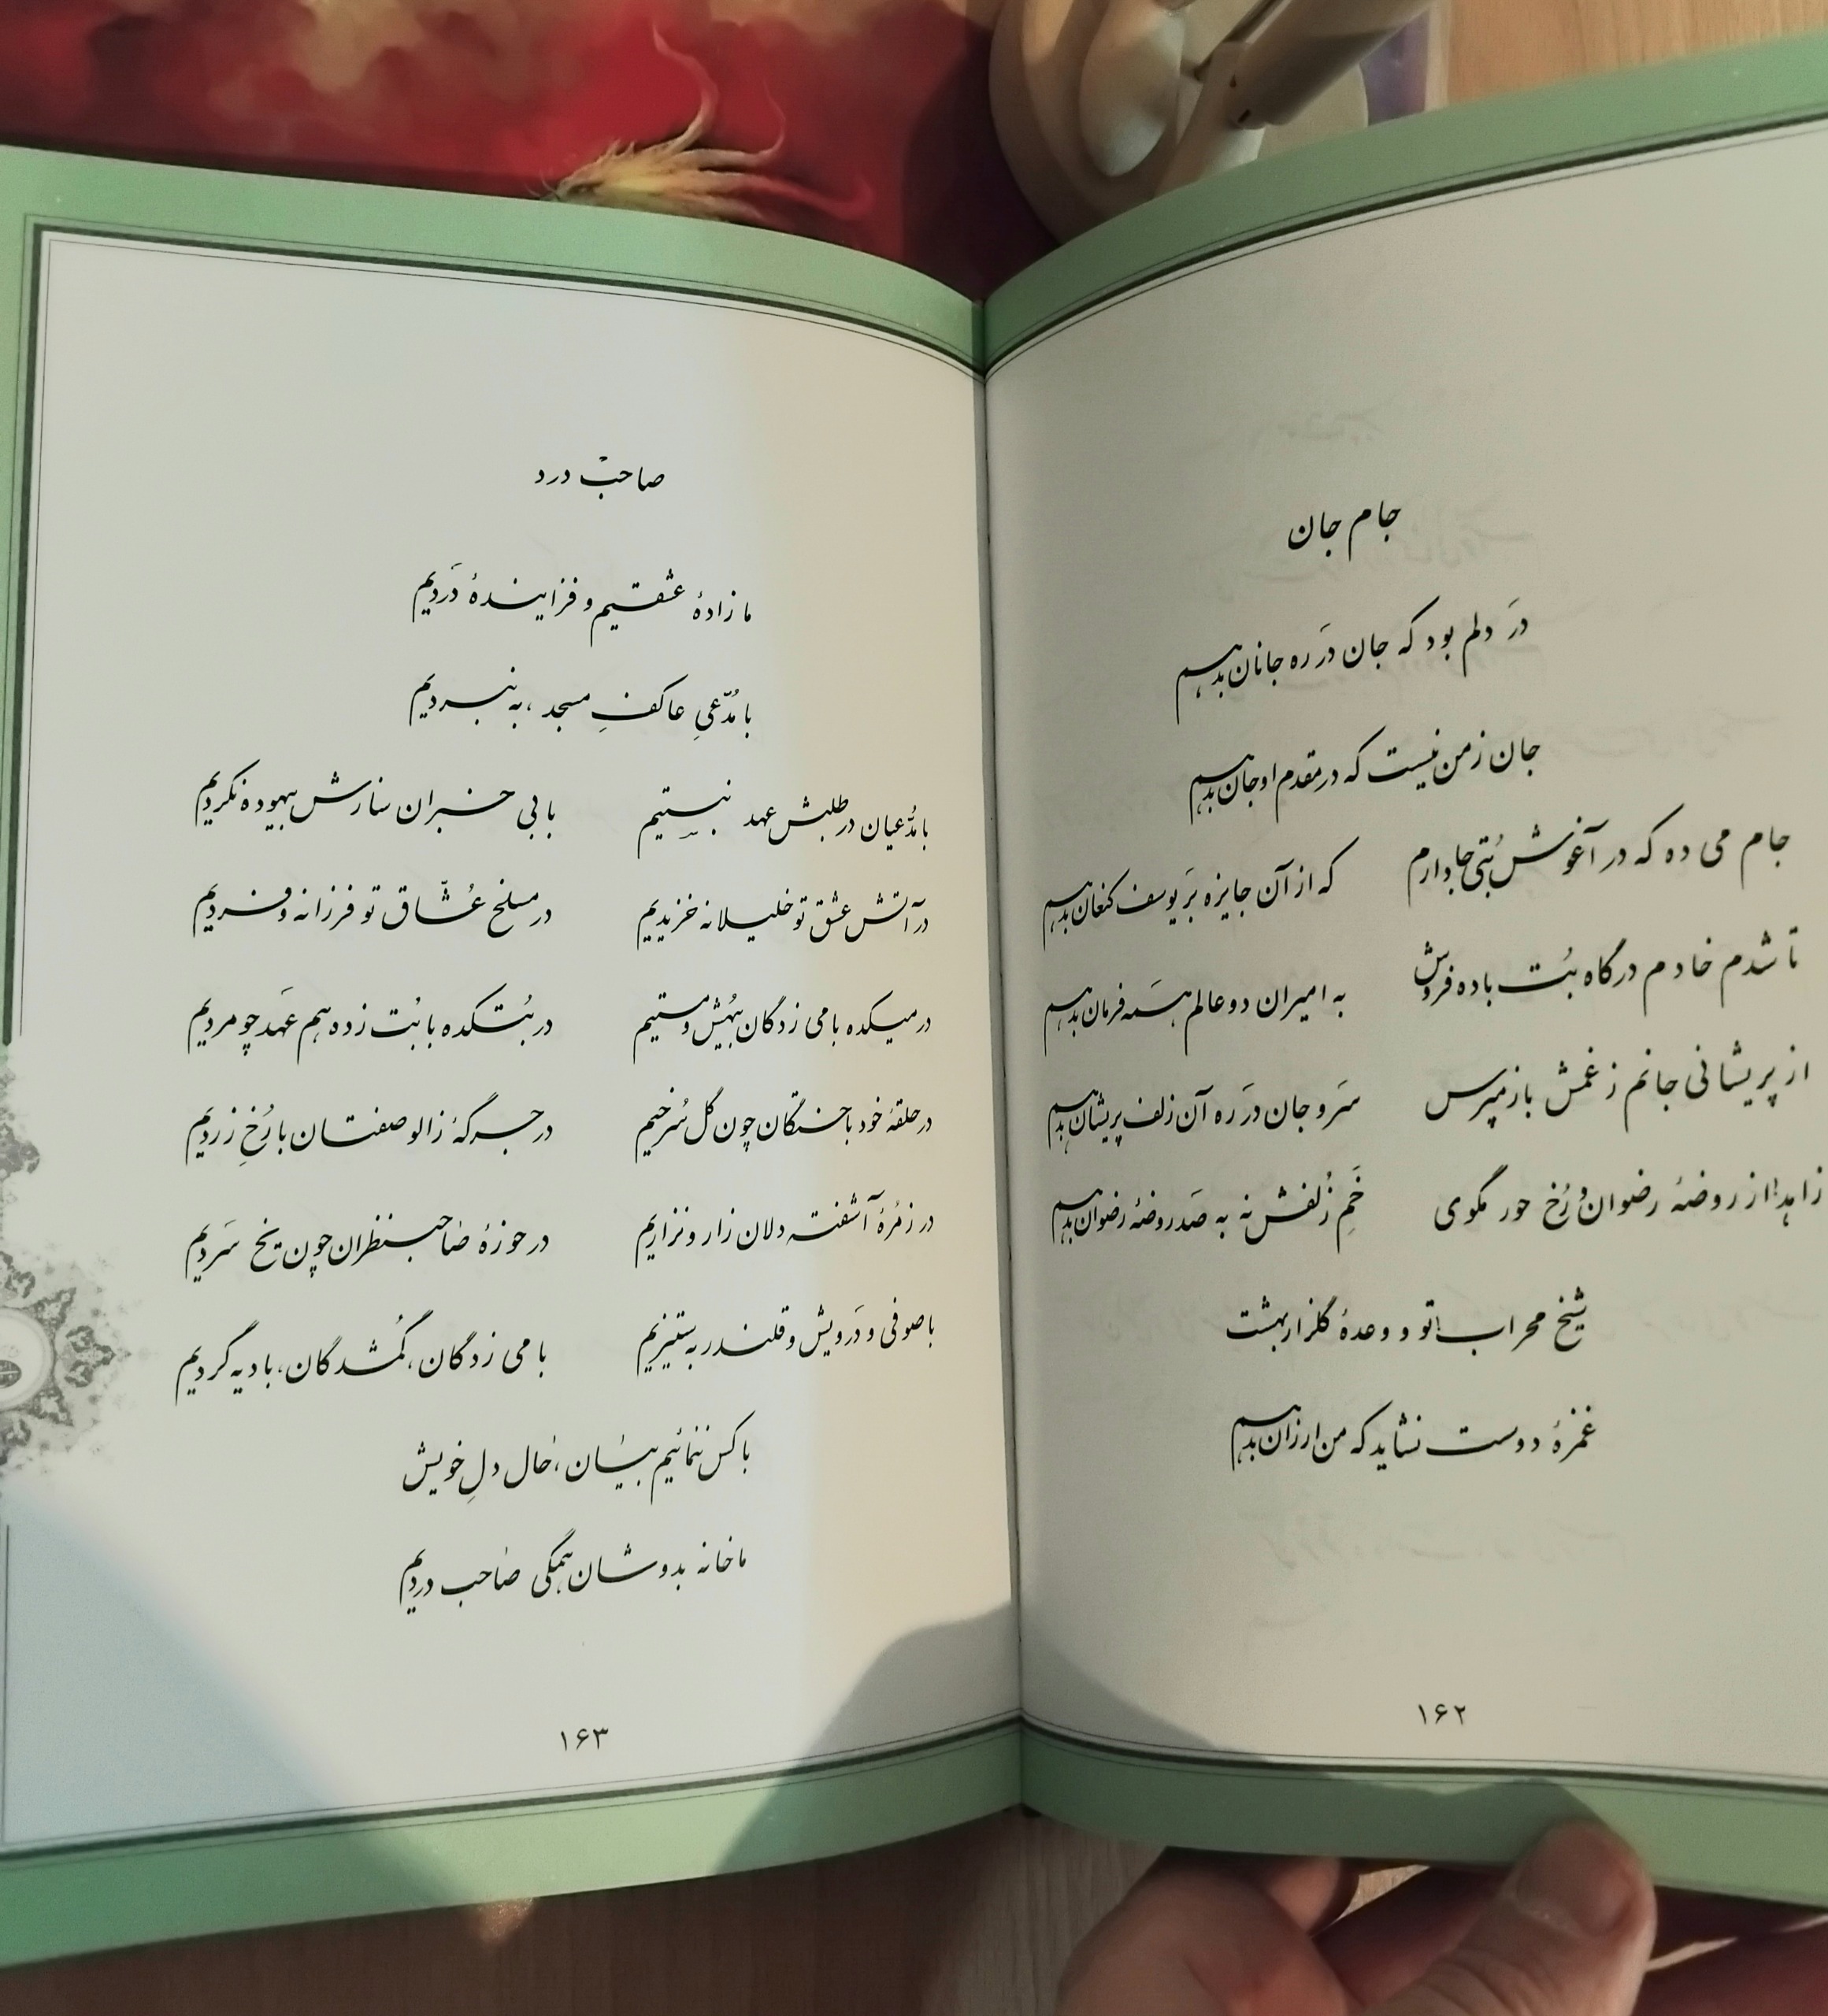 جام جان
درَ دلم بود که جان درَ ره جانان بدهم
جان ز من نیست که در مقدم او جان بدهم
جام می ده که در آغوش بُتی جا دارم که از آن جایزه بَر یوسف کنعان بدهم
تا شدم خادم درگاه بُت باده فروش به امیران دو عالم همه فرمان بدهم
از پریشانی جانم ز غمش باز مپرس سَر و جان درَ ره آن زلف پریشان بدهم
زاهد! از روضهٔ رضوان و رُخ حور مگوی خَمِ زُلفش نه به صَد روضهٔ رضوان بدهم
شیخ محراب! تو و وعدهٔ گلزار بهشت
غمزهٔ دوست نشاید که من ارزان بدهم
۱۶۲
صاحب درد
ما زادهٔ عشقیم و فزایندهٔ دَردیم
با مُدّعیِ عاکفِ مسجد، به نبردیم
با مدُّعیان در طلبش عهد نبستیم با بی خبران سازش بیهوده نکردیم
در آتش عشق تو خلیلانه خزیدیم در مسلخ عُشّاق تو فرزانه و فردیم
در میکده با می زدگان بیهُش و مستیم در بُتکده با بُت زده هم عَهد چو مردیم
در حلقهٔ خود باختگان چون گل سُرخیم در جرگهٔ زالو صفتان با رُخِ زردیم
در زمُرهٔ آشفته دلان زار و نزاریم در حوزهٔ صاحب نظران چون یخ سَردیم
با صوفی و دَرویش و قلندر به ستیزیم با می زدگان، گُمشدگان، بادیه گردیم
با کس ننمائیم بیان، حال دلِ خویش
ما خانه بدوشان همگی صاحب دردیم
۱۶۳